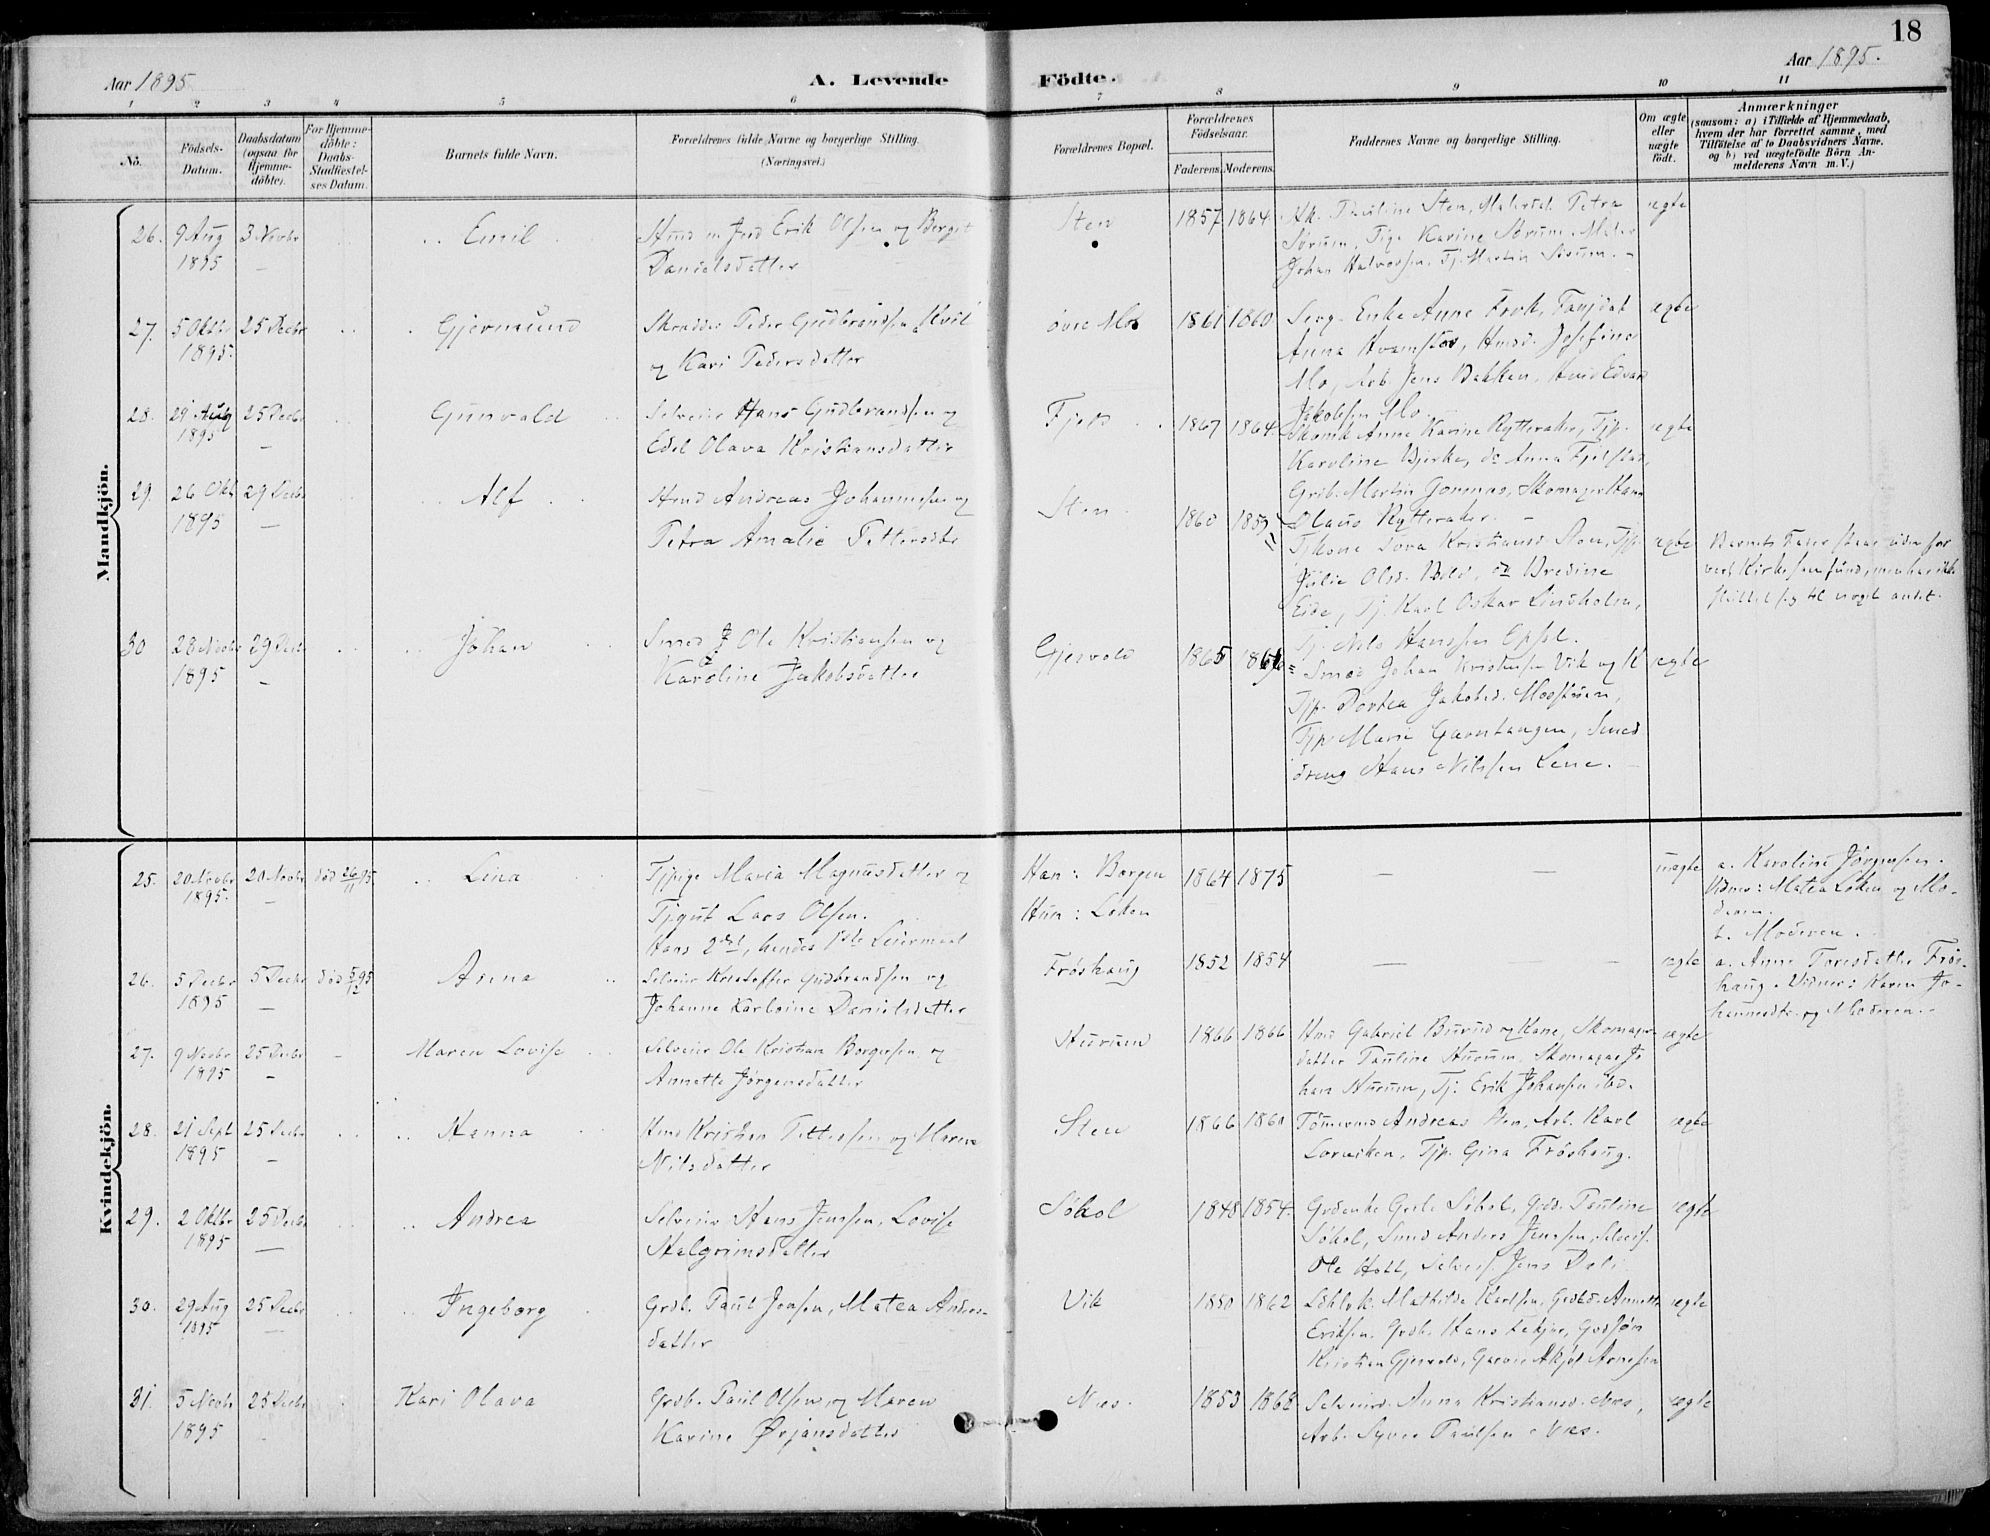 18
Aar 1895
A. Levende Födte.
Aar 1895.
1 2 3 4 5 6 7 8 9 10 11
No.
Födsels-Datum.
Daabsdatum (ogsaa for Hjemme-döbte).
For Hjemme-döbte: Daabs-Stadfæstel-ses Datum.
Barnets fulde Navn.
Forældrenes fulde Navne og borgerlige Stilling. (Næringsvei.)
Forældrenes Bopæl.
Forældrenes Födselsaar.
Faderens. Moderens.
Faddernes Navne og borgerlige Stilling.
Om ægte eller uægte födt.
Anmærkninger
(saasom: a) i Tilfælde af Hjemmedaab,
hvem der har forrettet samme, med
Tilföielse af to Daabsvidners Navne.
og b) ved uægtefödte Börn An-
melderens Navn m.V.)
Mandkjön.
26. 9 Aug 1895 3 Novbr
Emil
Hmd m Jord Erik Olsen og Berget
Danielsdatter
Sten
1857 1864
Pauline Sten, Petra
Sørum, Pige Karine Sørum, Maler
Johan Halvorsen, Tj. Martin Sørum.
ægte
27. 5 Oktbr 1895. 25 Decbr
Gjermund
Skrædder Peder Gudbrandsen
og Kari Pedersdatter
øvre Mo
1861 1860
Enke Anne
Anna Hvamstad, Hmd. Josefine
Mo, Arb. Jens Bakken, Edvard
Jakobsen Mo.
ægte
28. 29 Aug 1895 25 Decbr
Gunvald
Selveier Hans Gudbrandsen og
Edel Olava Kristiansdatter
Fjeld
1867 1864
Anne Karine Rytteraker, Tjp.
Karoline Bjerke, do Anna Fjelstad,
Grdb. Martin Skomager Hans
Olaus Rytteraker.
ægte
29. 26 Okt 1895 29 Decbr
Alf
Hmd Andreas Johannesen og
Petra Amalie Pettersdtr
Sten
1860 1859
Kristiansd. Tjp.
Julie Olsd. do Bredine
Eide, Tj. Karl Oskar Lindholm,
Tj. Nils Hanssen
ægte
Barnets Fader staar uden for
vort Kirkesamfund, men har ikke
sluttet sig til noget andet.
30 28 Novbr 1895 29 Decbr
Johan
Smed Ole Kristiansen og
Karoline Jakobsdatter
Gjesvold
1865
Smed Johan Kristiansen Vik og K
Tjp. Dortea Jakobsd.
Tjp. Marie Smed
dreng Hans Nilssen Lene.
ægte
Kvindekjön.
25. 20 Novbr 1895. 20 Novbr död 26/11 95
Lina
Tjpige Maria Magnusdatter og
Tjgut Lars Olsen.
Hans 2det, hendes 1ste Leiermaal
Han: Borgen
Hun: Løken
1864 1875
uægte
a. Karoline Jörgensen.
Vidner: Matea Løken og Mo-
deren.
b. Moderen.
26. 5 Decbr 1895 5 Decbr död 5/12 95
Anna
Selveier Kristoffer Gudbrandsen og
Johanne Karoline Danielsdatter
Fröshaug
1852 1854
ægte
a. Anne Toresdatter Frös-
haug. Vidner: Karen Jo-
hannesdtr og Moderen.
27. 9 Novbr 1895 25 Decbr
Maren Lovise
Selveier Ole Kristian Borgersen og
Annette Jørgensdatter
Hurum
1866 1866
Gabriel Burud og Kone, Skomager-
datter Pauline Hurum, Skomager Jo
han Hurum, Tj. Erik Johansen ibd.
ægte
28. 21 Sept 1895 25 Decbr
Hanna
Hmd Kristian Pettersen og Maren
Nilsdatter
Sten
1866 1860
Tömmermd Andreas Sten, Arb. Karl
Lorviken, Tjp. Gina Fröshaug.
ægte
29. 2 Oktbr 1895 25 Decbr
Andrea
Selveier Hans Jenssen, Lovise
Halgrimsdatter
Søhol
1848 1854
Søhol, Pauline
Søhol, Smed Anders Jenssen, Selveier
Ole Holt, Jens Dali
ægte
30. 29 Aug 1895 25 Decbr
Ingeborg
Grdb. Paul Jonsen, Matea Anders-
datter
Vik
1850 1862
Mathilde Karlsen, Annette
Eriksen, Grdb. Hans
Kristian Gjesvold, Arnesen
ægte
31. 5 Novbr 1895 25 Decbr
Kari Olava
Grdb. Paul Olsen og Maren
Karine Ørjansdatter
Næs.
1853 1868
Anna Kristiansd. Næs,
Arb. Syver Paulsen Næs.
ægte